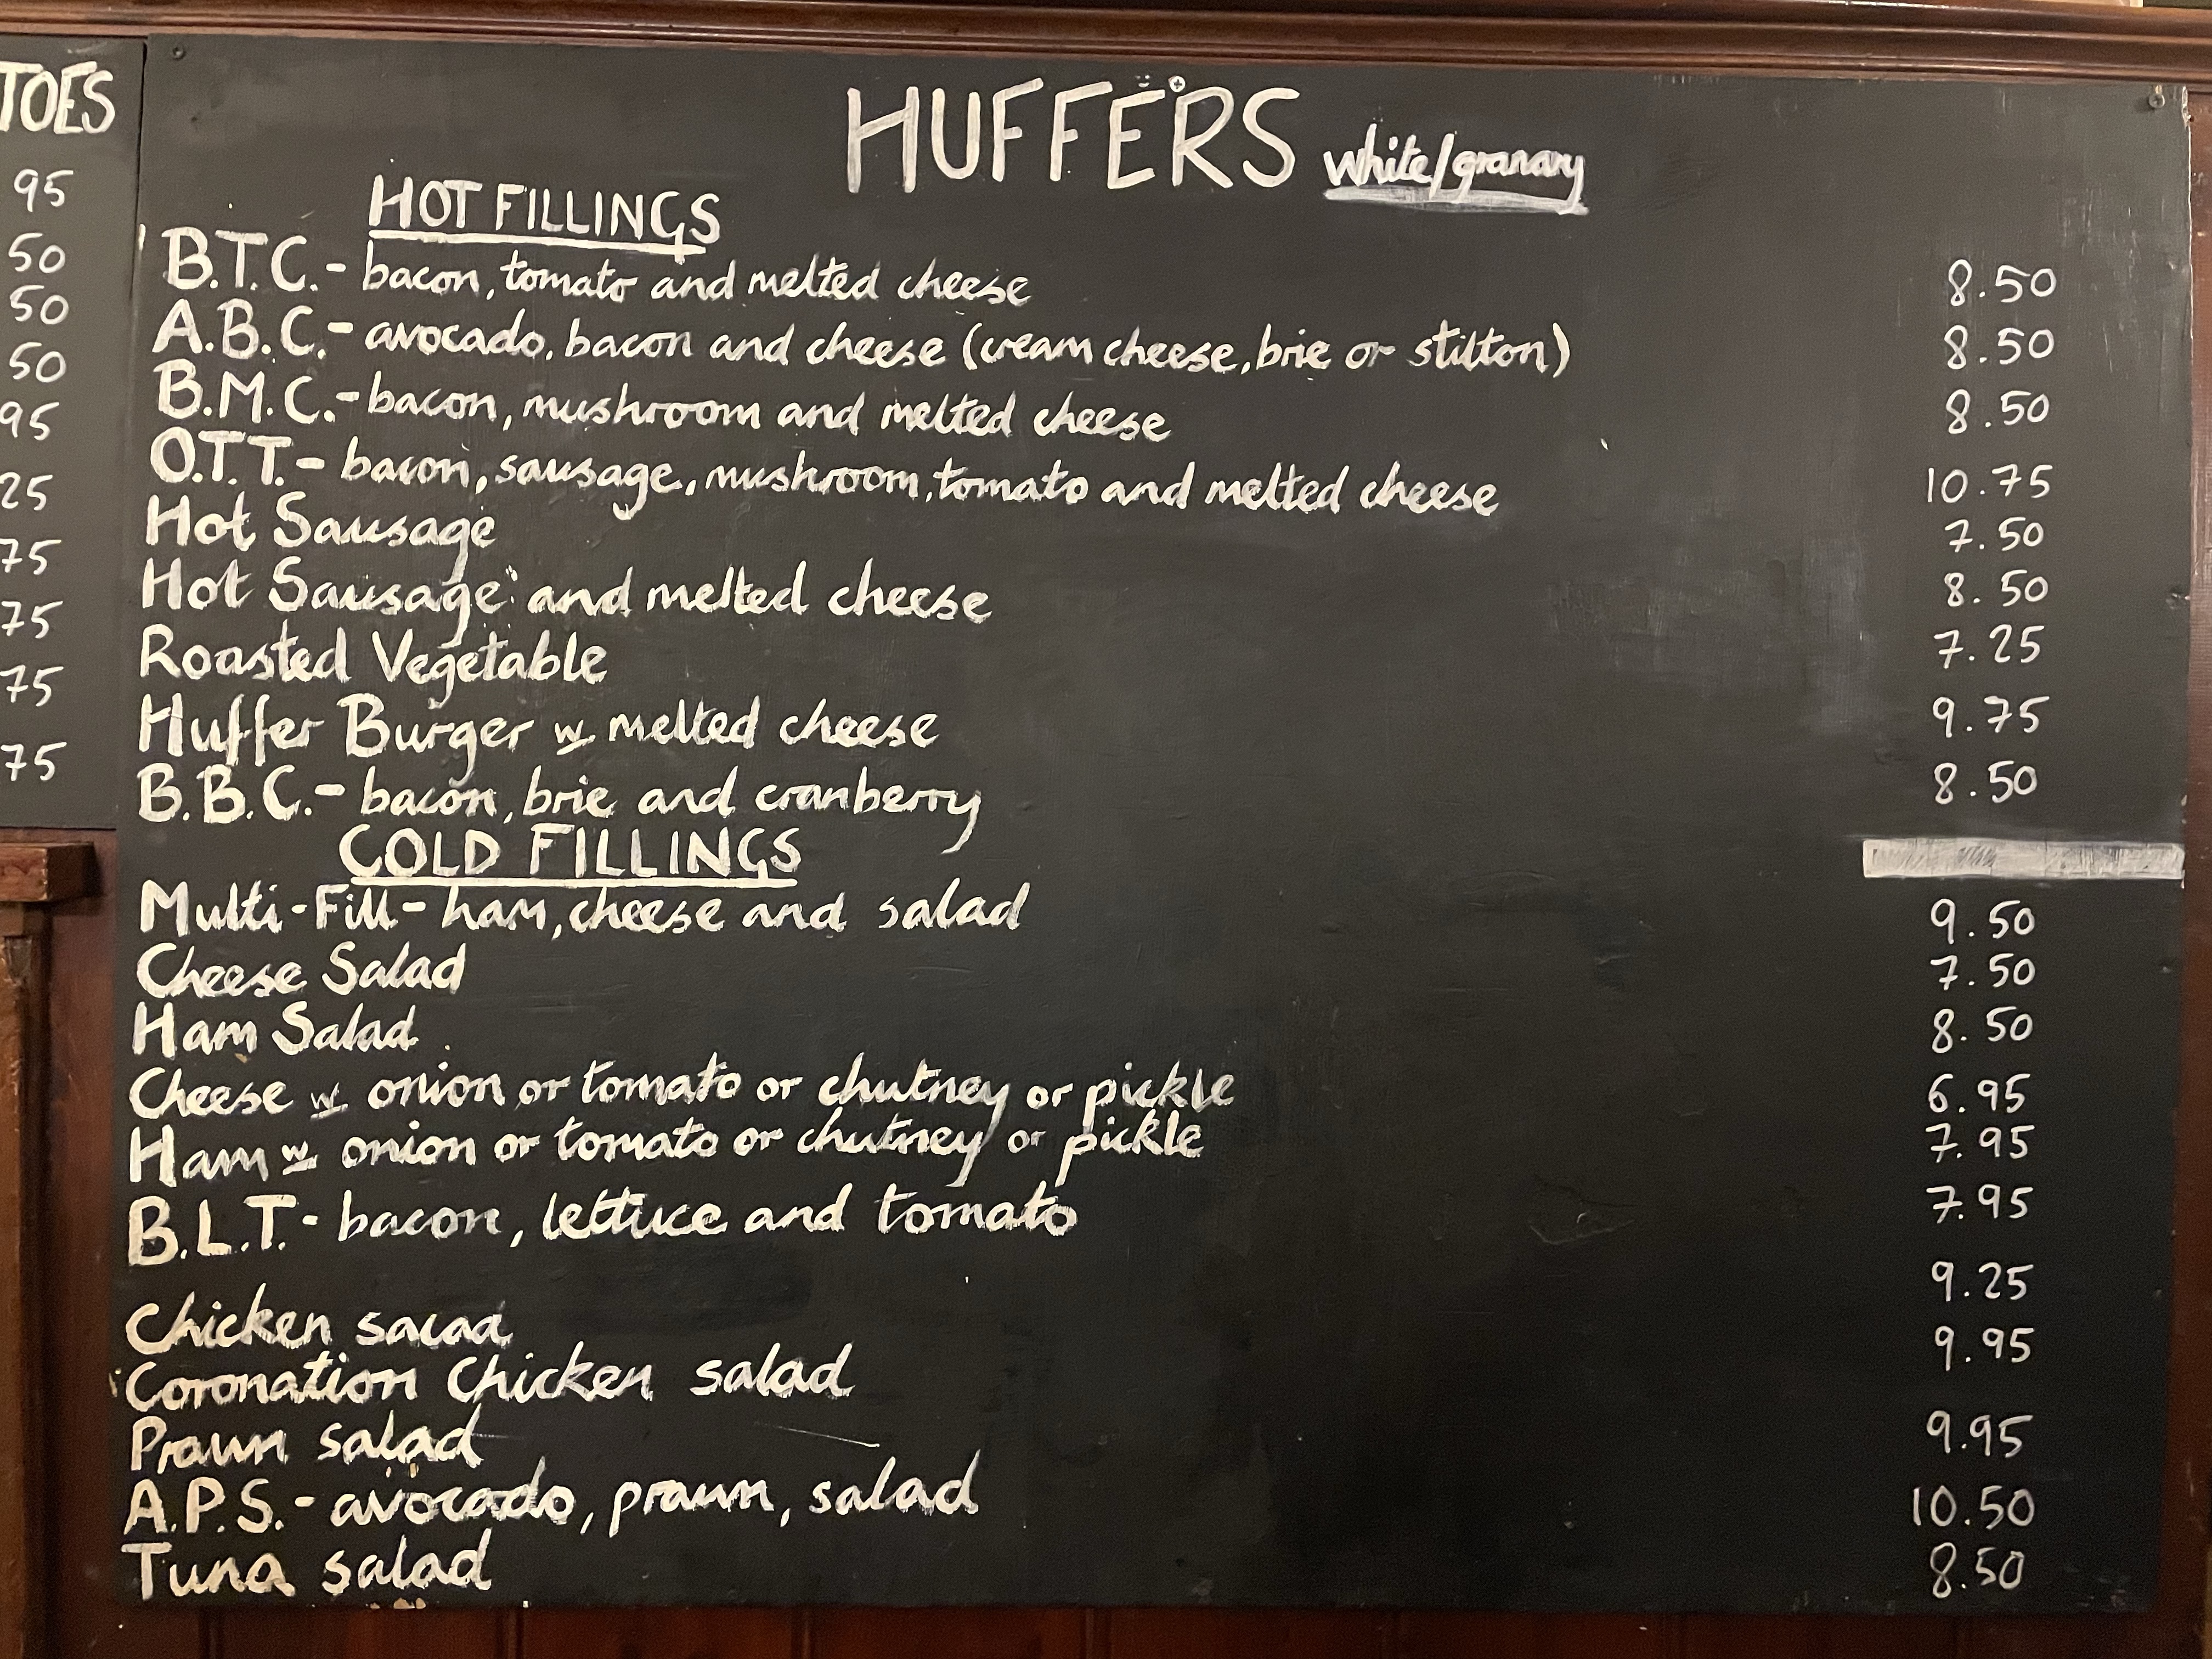 TOES
95
50
50
50
95
25
75
75
75
75
HUFFERS white/granary
HOT FILLINGS
B.T.C.- bacon, tomato and melted cheese 8.50
A.B.C.- avocado, bacon and cheese (cream cheese, brie or stilton) 8.50
B.M.C.- bacon, mushroom and melted cheese 8.50
O.T.T.- bacon, sausage, mushroom, tomato and melted cheese 10.75
Hot Sausage 7.50
Hot Sausage and melted cheese 8.50
Roasted Vegetable 7.25
Huffer Burger w melted cheese 9.75
B.B.C.- bacon, brie and cranberry 8.50
COLD FILLINGS
Multi-Fill- ham, cheese and salad 9.50
Cheese Salad 7.50
Ham Salad 8.50
Cheese w onion or tomato or chutney or pickle 6.95
Ham w onion or tomato or chutney or pickle 7.95
B.L.T.- bacon, lettuce and tomato 7.95
Chicken salad 9.25
Coronation Chicken salad 9.95
Prawn salad 9.95
A.P.S.- avocado, prawn, salad 10.50
Tuna salad 8.50